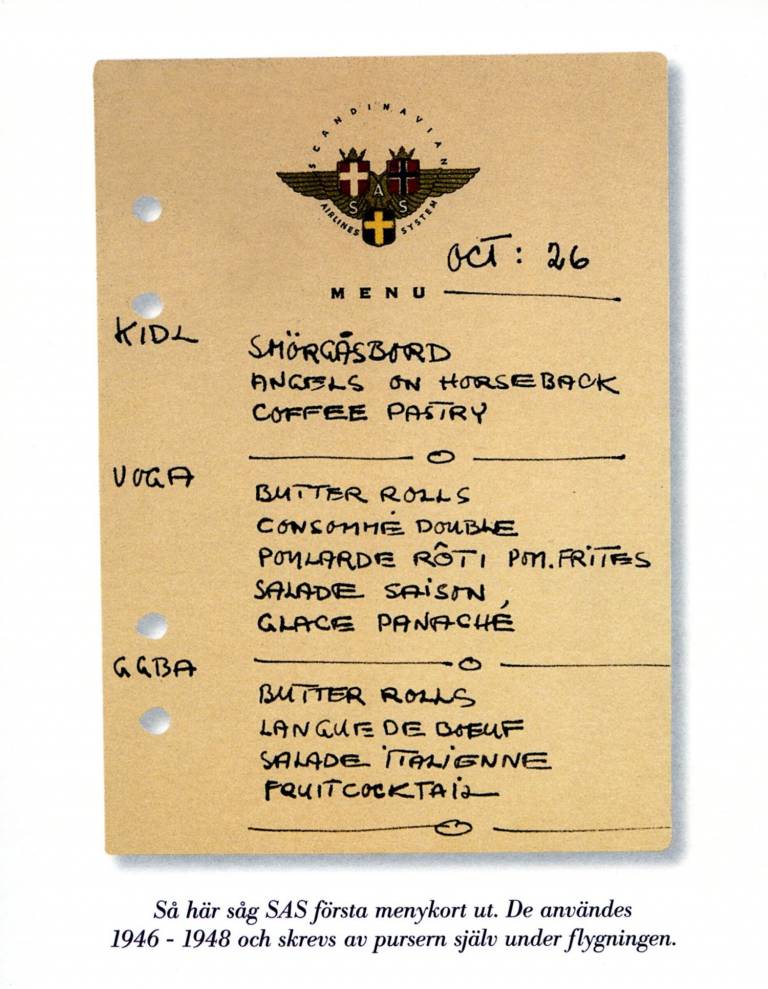 SCANDINAVIAN
SAS
AIRLINES SYSTEM
OCT: 26
MENU
KIDL
SMÖRGÅSBORD
ANGELS ON HORSEBACK
COFFEE PASTRY
VOGA
BUTTER ROLLS
CONSOMMÉ DOUBLE
POULARDE RÔTI POM.FRITES
SALADE SAISON
GLACE PANACHÉ
GGBA
BUTTER ROLLS
LANGUE DE BOEUF
SALADE ITALIENNE
FRUITCOCKTAIL
Så här såg SAS första menykort ut. De användes
1946 - 1948 och skrevs av pursern själv under flygningen.